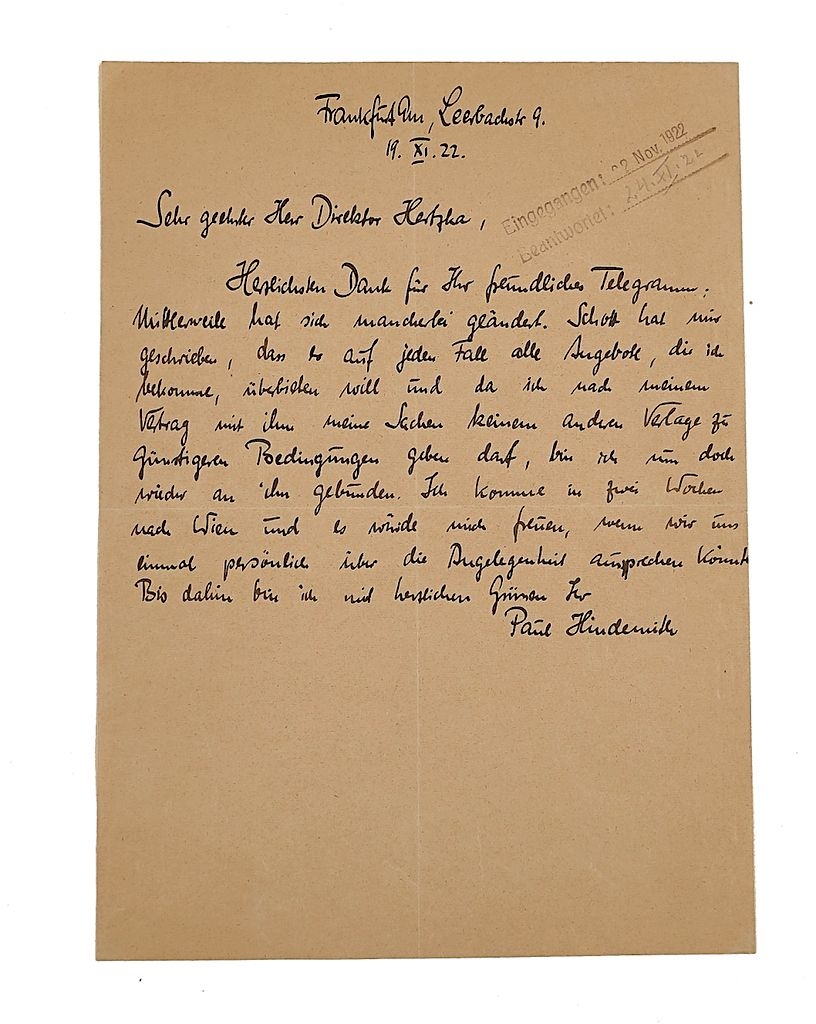 Frankfurt a/m, Leerbachstr 9.
19. XI. 22.
Eingegangen: 22 Nov. 1922
Beantwortet: 24. XI. 22
Sehr geehrter Herr Direktor Hertzka,
Herzlichsten Dank für Ihr freundliches Telegramm.
Mittlerweile hat sich mancherlei geändert. Schott hat mir
geschrieben, dass er auf jeden Fall alle Angebote, die ich
bekomme, überbieten will und da ich nach meinem
Vertrag mit ihm meine Sachen keinem anderen Verlage zu
günstigeren Bedingungen geben darf, bin ich nun doch
wieder an ihn gebunden. Ich komme in zwei Wochen
nach Wien und es würde mich freuen, wenn wir uns
einmal persönlich über die Angelegenheit aussprechen könnten
Bis dahin bin ich mit herzlichen Grüssen Ihr
Paul Hindemith